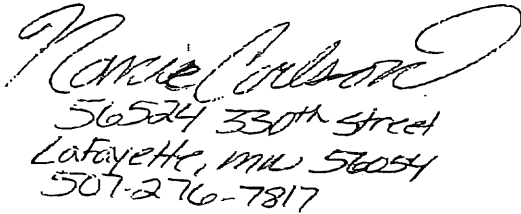 Nancie Carlson
56524 330th Street
Lafayette, mn 56054
507-276-7817